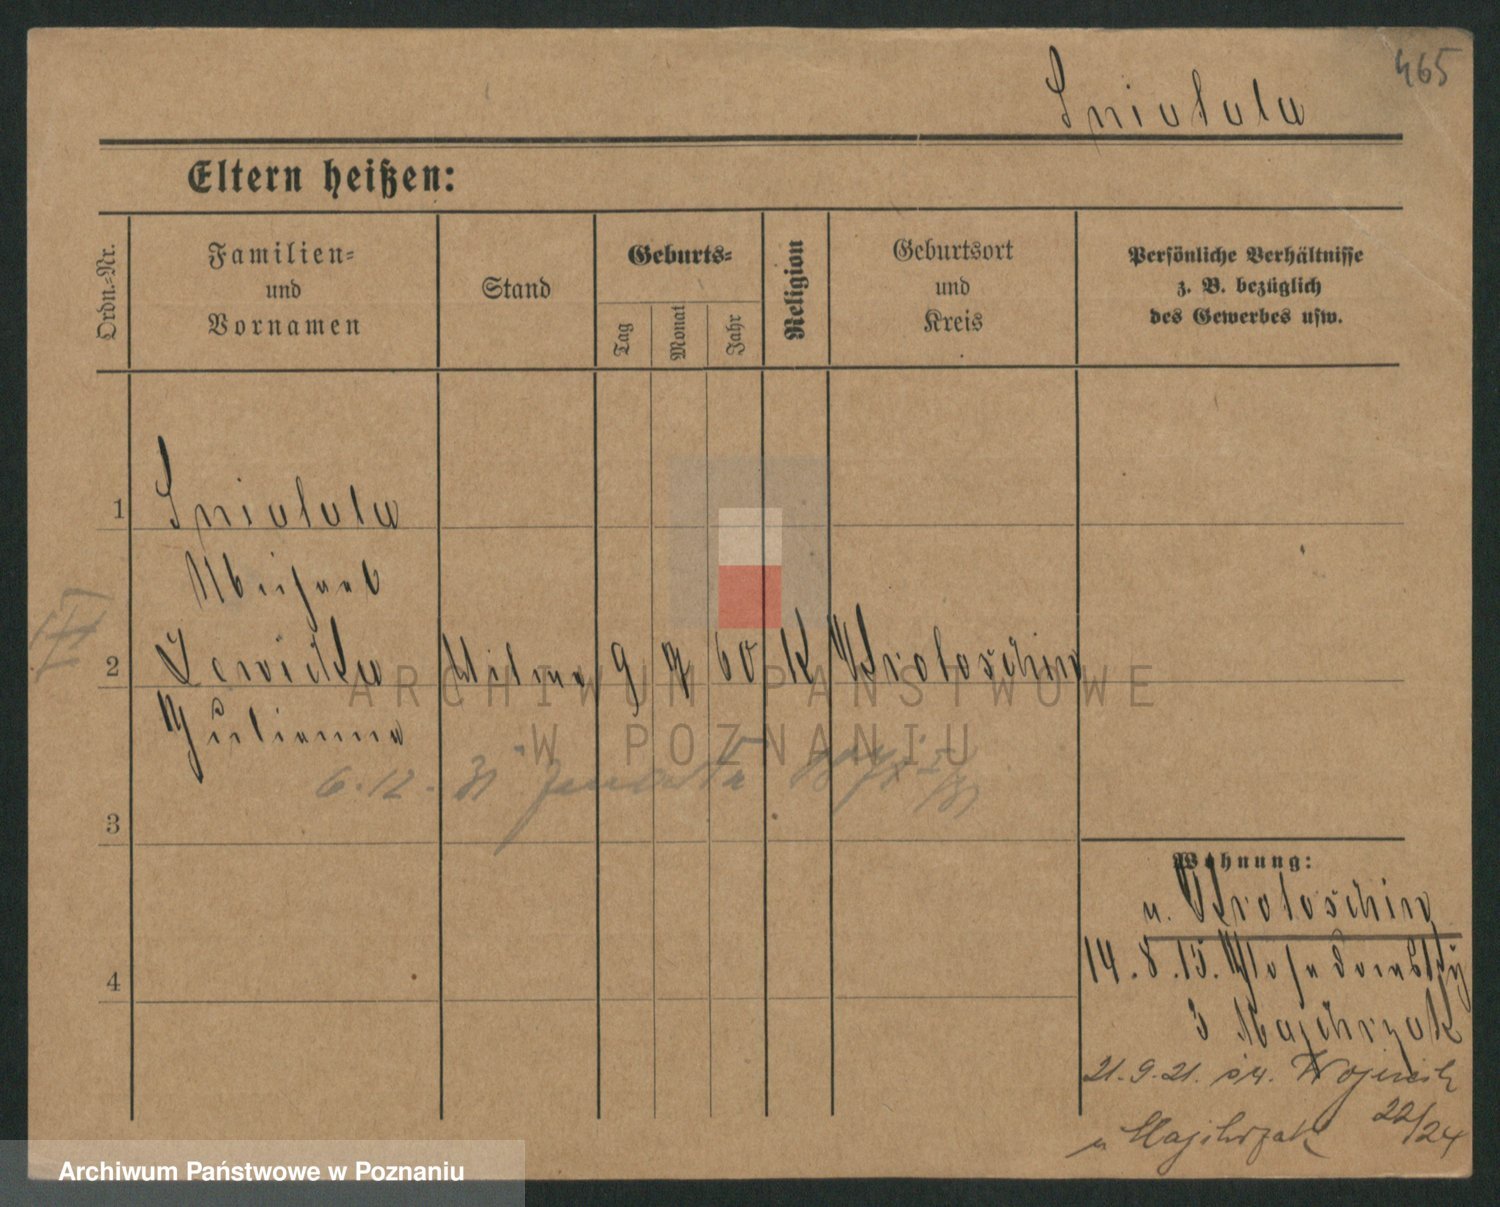 465
Sniatala
Eltern heißen:
Ordn.-Nr.
Familien-
und
Vornamen
Stand
Geburts-
Tag
Monat
Jahr
Religion
Geburtsort
und
Kreis
Persönliche Verhältnisse
z. B. bezüglich
des Gewerbes usw.
1
Sniatala
Michael
2
Lewicka 9 7 60 K Krotoschin
Julianna
ARCHIWUM PAŃSTWOWE
W POZNANIU
6.12.31
3
Wohnung:
u. Krotoschin
14.8.15.
4
3 Majchrzak
21.9.21. św.
u Majchrzak 22/24
Archiwum Państwowe w Poznaniu